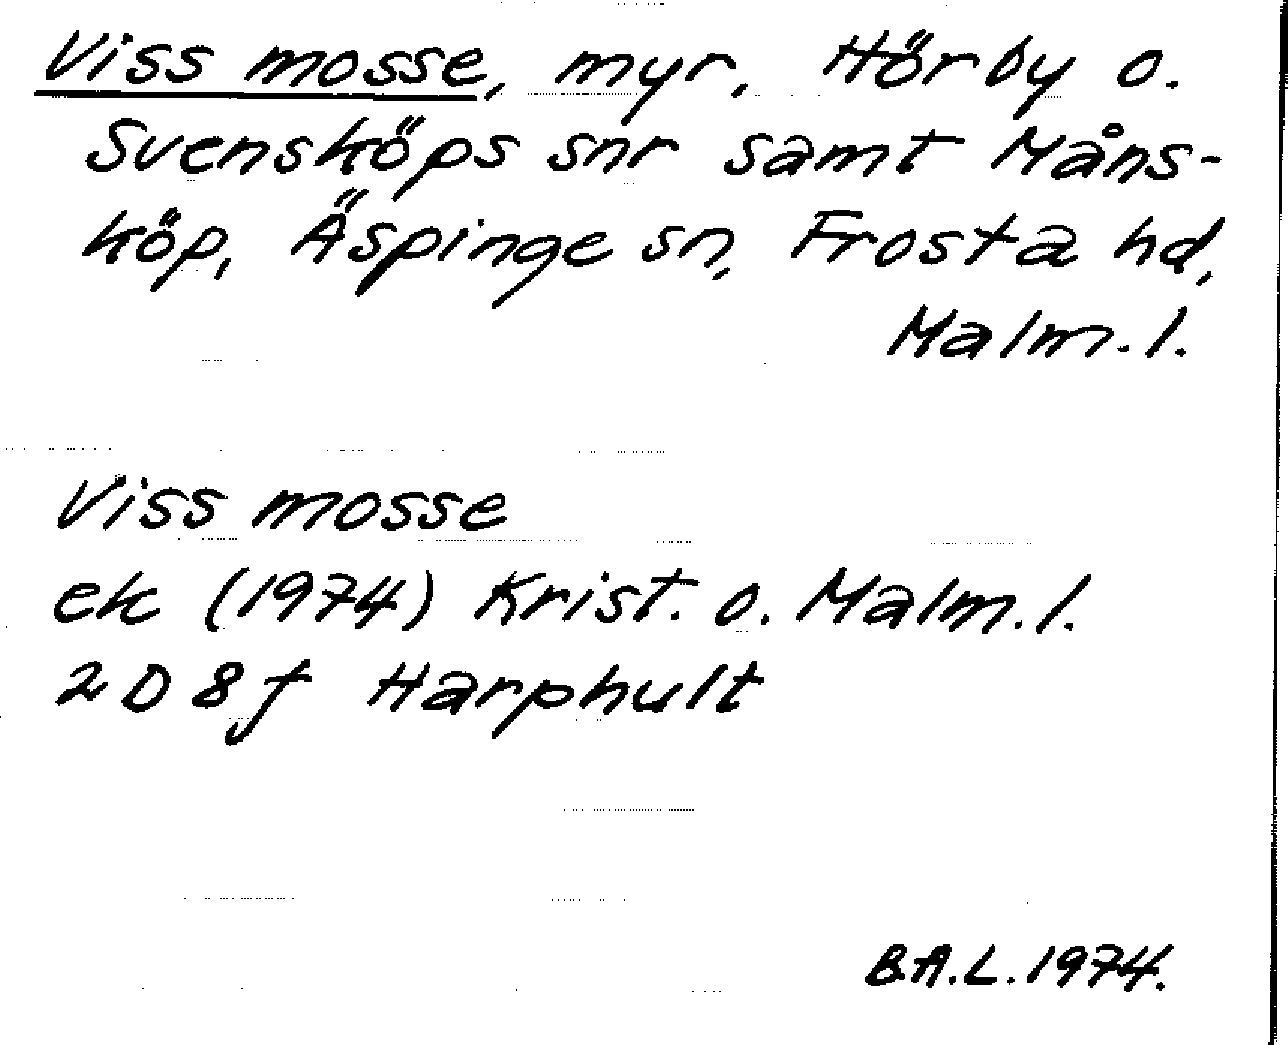 Viss mosse, myr, Hörby o.
Svensköps snr samt Måns-
köp, Äspinge sn, Frosta hd,
Malm.l.
Viss mosse
ek (1974) Krist. o. Malm.l.
2 D 8 f Harphult
B.A.L. 1974.